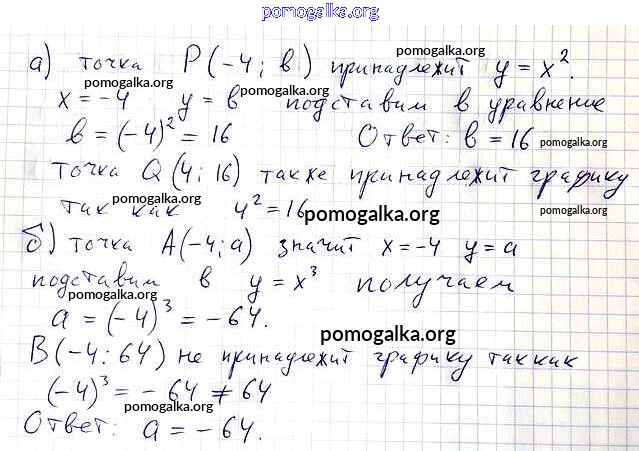 pomogalka.org
а) точка P(-4; в) принадлежит y = x². pomogalka.org
pomogalka.org
x = -4 y = в подставим в уравнение
pomogalka.org
в = (-4)² = 16 Ответ: в = 16 pomogalka.org
точка Q(4; 16) также принадлежит графику
pomogalka.org
так как 4² = 16 pomogalka.org pomogalka.org
б) точка A(-4; a) значит x = -4 y = a
подставим в y = x³ получаем
pomogalka.org
a = (-4)³ = -64.
pomogalka.org
B(-4; 64) не принадлежит графику так как
(-4)³ = -64 ≠ 64
pomogalka.org
Ответ: a = -64.